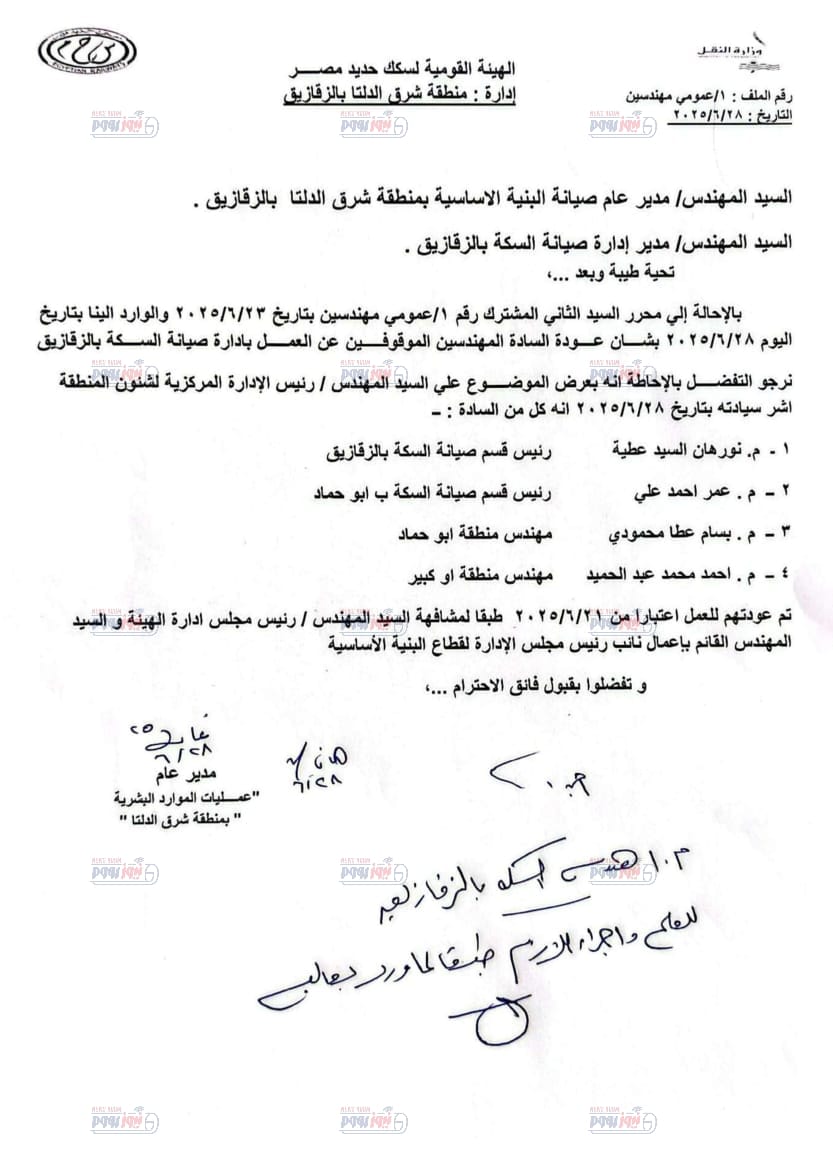 وزارة النقل
EGYPTIAN RAILWAYS
الهيئة القومية لسكك حديد مصـــر
إدارة : منطقة شرق الدلتا بالزقازيق
رقم الملف : ١/عمومي مهندسين
التاريخ : ٢٠٢٥/٦/٢٨
السيد المهندس/ مدير عام صيانة البنية الاساسية بمنطقة شرق الدلتا بالزقازيق .
السيد المهندس/ مدير إدارة صيانة السكة بالزقازيق .
تحية طيبة وبعد ...،
بالإحالة إلي محرر السيد الثاني المشترك رقم ١/عمومي مهندسين بتاريخ ٢٠٢٥/٦/٢٣ والوارد الينا بتاريخ
اليوم ٢٠٢٥/٦/٢٨ بشـان عـودة السادة المهندسين الموقوفـين عن العمـل بادارة صيانة السـكة بالزقازيق
نرجو التفضـــل بالإحاطة انه بعرض الموضـــوع علي السيد المهندس / رئيس الإدارة المركزية لشئون المنطقة
اشر سيادته بتاريخ ٢٠٢٥/٦/٢٨ انه كل من السادة : –
١ - م. نورهان السيد عطية رئيس قسم صيانة السكة بالزقازيق
٢ – م . عمر احمد علي رئيس قسم صيانة السكة ب ابو حماد
٣ – م . بسام عطا محمودي مهندس منطقة ابو حماد
٤ – م . احمد محمد عبد الحميد مهندس منطقة او كبير
تم عودتهم للعمل اعتبارا من ٢٠٢٥/٦/٢١ طبقا لمشافهة السيد المهندس / رئيس مجلس ادارة الهيئة و السيد
المهندس القائم بإعمال نائب رئيس مجلس الإدارة لقطاع البنية الأساسية
و تفضلوا بقبول فائق الاحترام ...،
٦/٢٨
٦/٢٨
مدير عام
"عمـــليات الموارد البشرية
" بمنطقة شرق الدلتا "
السكة بالزقازيق
للعلم واجراء اللازم طبقا لما ورد بعاليه
نيوز رووم